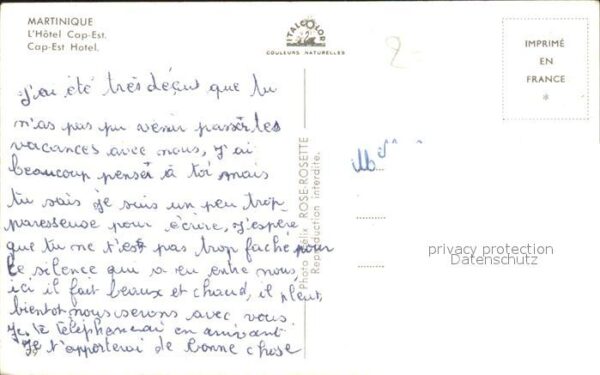 MARTINIQUE
L'Hôtel Cap-Est.
Cap-Est Hotel.
ITALCOLOR
COULEURS NATURELLES
2-
IMPRIMÉ
EN
FRANCE
*
J'ai été très déçus que tu
m'as pas pu venir passér tes
vacances avec nous, j'ai
beaucoup pensér à toi, mais
tu sais je suis un peu trop
paresseuse pour écrire, J'espère
que tu ne t'est pas trop faché pour
le silence qui a eu entre nous
ici il fait beaux et chaud, il pleut,
bientot nous serons avec vous
Je te téléphonerai en arrivant
Je t'apporterai de bonne chose
Photo Félix ROSE-ROSETTE
Reproduction interdite.
privacy protection
Datenschutz